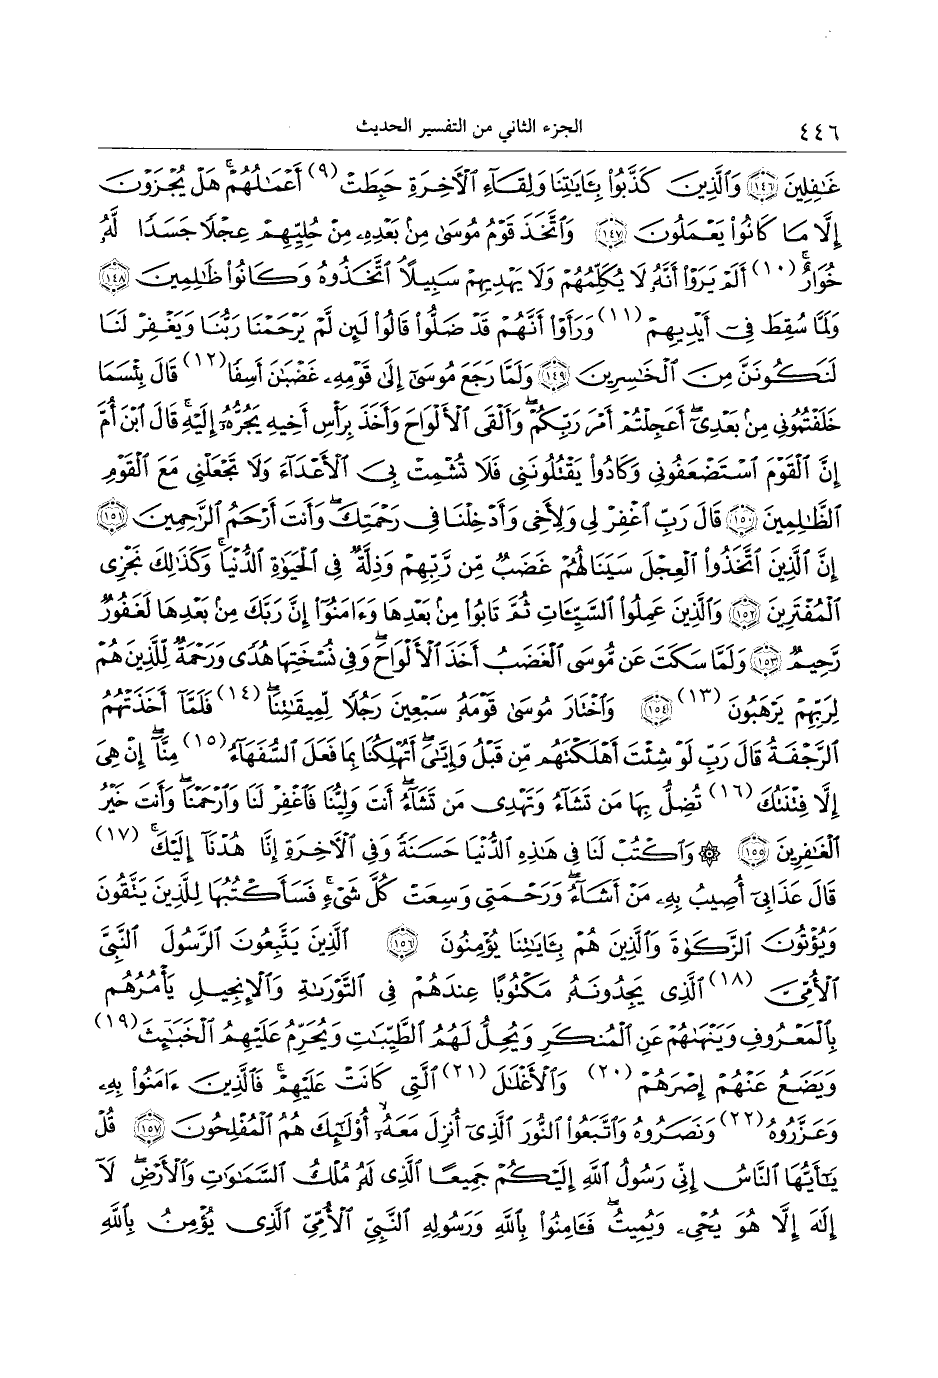 ٤٤٦ الجزء الثاني من التفسير الحديث
غَٰفِلِينَ ١٤٦ وَٱلَّذِينَ كَذَّبُوا۟ بِـَٔايَٰتِنَا وَلِقَآءِ ٱلْأَخِرَةِ حَبِطَتْ (٩) أَعْمَٰلُهُمْ ۚ هَلْ يُجْزَوْنَ
إِلَّا مَا كَانُوا۟ يَعْمَلُونَ ١٤٧ وَٱتَّخَذَ قَوْمُ مُوسَىٰ مِنۢ بَعْدِهِۦ مِنْ حُلِيِّهِمْ عِجْلًا جَسَدًا لَّهُۥ
خُوَارٌ ۚ (١٠) أَلَمْ يَرَوْا۟ أَنَّهُۥ لَا يُكَلِّمُهُمْ وَلَا يَهْدِيهِمْ سَبِيلًا ۘ ٱتَّخَذُوهُ وَكَانُوا۟ ظَٰلِمِينَ ١٤٨
وَلَمَّا سُقِطَ فِىٓ أَيْدِيهِمْ (١١) وَرَأَوْا۟ أَنَّهُمْ قَدْ ضَلُّوا۟ قَالُوا۟ لَئِن لَّمْ يَرْحَمْنَا رَبُّنَا وَيَغْفِرْ لَنَا
لَنَكُونَنَّ مِنَ ٱلْخَٰسِرِينَ ١٤٩ وَلَمَّا رَجَعَ مُوسَىٰٓ إِلَىٰ قَوْمِهِۦ غَضْبَٰنَ أَسِفًا (١٢) قَالَ بِئْسَمَا
خَلَفْتُمُونِى مِنۢ بَعْدِىٓ ۖ أَعَجِلْتُمْ أَمْرَ رَبِّكُمْ ۖ وَأَلْقَى ٱلْأَلْوَاحَ وَأَخَذَ بِرَأْسِ أَخِيهِ يَجُرُّهُۥٓ إِلَيْهِ ۚ قَالَ ٱبْنَ أُمَّ
إِنَّ ٱلْقَوْمَ ٱسْتَضْعَفُونِى وَكَادُوا۟ يَقْتُلُونَنِى فَلَا تُشْمِتْ بِىَ ٱلْأَعْدَآءَ وَلَا تَجْعَلْنِى مَعَ ٱلْقَوْمِ
ٱلظَّٰلِمِينَ ١٥٠ قَالَ رَبِّ ٱغْفِرْ لِى وَلِأَخِى وَأَدْخِلْنَا فِى رَحْمَتِكَ ۖ وَأَنتَ أَرْحَمُ ٱلرَّٰحِمِينَ ١٥١
إِنَّ ٱلَّذِينَ ٱتَّخَذُوا۟ ٱلْعِجْلَ سَيَنَالُهُمْ غَضَبٌ مِّن رَّبِّهِمْ وَذِلَّةٌ فِى ٱلْحَيَوٰةِ ٱلدُّنْيَا ۚ وَكَذَٰلِكَ نَجْزِى
ٱلْمُفْتَرِينَ ١٥٢ وَٱلَّذِينَ عَمِلُوا۟ ٱلسَّيِّـَٔاتِ ثُمَّ تَابُوا۟ مِنۢ بَعْدِهَا وَءَامَنُوٓا۟ إِنَّ رَبَّكَ مِنۢ بَعْدِهَا لَغَفُورٌ
رَّحِيمٌ ١٥٣ وَلَمَّا سَكَتَ عَن مُّوسَى ٱلْغَضَبُ أَخَذَ ٱلْأَلْوَاحَ ۖ وَفِى نُسْخَتِهَا هُدًى وَرَحْمَةٌ لِّلَّذِينَ هُمْ
لِرَبِّهِمْ يَرْهَبُونَ (١٣) ١٥٤ وَٱخْتَارَ مُوسَىٰ قَوْمَهُۥ سَبْعِينَ رَجُلًا لِّمِيقَٰتِنَا ۖ (١٤) فَلَمَّآ أَخَذَتْهُمُ
ٱلرَّجْفَةُ قَالَ رَبِّ لَوْ شِئْتَ أَهْلَكْتَهُم مِّن قَبْلُ وَإِيَّٰىَ ۖ أَتُهْلِكُنَا بِمَا فَعَلَ ٱلسُّفَهَآءُ (١٥) مِنَّآ ۖ إِنْ هِىَ
إِلَّا فِتْنَتُكَ (١٦) تُضِلُّ بِهَا مَن تَشَآءُ وَتَهْدِى مَن تَشَآءُ ۖ أَنتَ وَلِيُّنَا فَٱغْفِرْ لَنَا وَٱرْحَمْنَا ۖ وَأَنتَ خَيْرُ
ٱلْغَٰفِرِينَ ١٥٥ ۞ وَٱكْتُبْ لَنَا فِى هَٰذِهِ ٱلدُّنْيَا حَسَنَةً وَفِى ٱلْأَخِرَةِ إِنَّا هُدْنَآ إِلَيْكَ ۚ (١٧)
قَالَ عَذَابِىٓ أُصِيبُ بِهِۦ مَنْ أَشَآءُ ۖ وَرَحْمَتِى وَسِعَتْ كُلَّ شَىْءٍ ۚ فَسَأَكْتُبُهَا لِلَّذِينَ يَتَّقُونَ
وَيُؤْتُونَ ٱلزَّكَوٰةَ وَٱلَّذِينَ هُم بِـَٔايَٰتِنَا يُؤْمِنُونَ ١٥٦ ٱلَّذِينَ يَتَّبِعُونَ ٱلرَّسُولَ ٱلنَّبِىَّ
ٱلْأُمِّىَّ (١٨) ٱلَّذِى يَجِدُونَهُۥ مَكْتُوبًا عِندَهُمْ فِى ٱلتَّوْرَىٰةِ وَٱلْإِنجِيلِ يَأْمُرُهُم
بِٱلْمَعْرُوفِ وَيَنْهَىٰهُمْ عَنِ ٱلْمُنكَرِ وَيُحِلُّ لَهُمُ ٱلطَّيِّبَٰتِ وَيُحَرِّمُ عَلَيْهِمُ ٱلْخَبَٰٓئِثَ (١٩)
وَيَضَعُ عَنْهُمْ إِصْرَهُمْ (٢٠) وَٱلْأَغْلَٰلَ (٢١) ٱلَّتِى كَانَتْ عَلَيْهِمْ ۚ فَٱلَّذِينَ ءَامَنُوا۟ بِهِۦ
وَعَزَّرُوهُ (٢٢) وَنَصَرُوهُ وَٱتَّبَعُوا۟ ٱلنُّورَ ٱلَّذِىٓ أُنزِلَ مَعَهُۥٓ ۙ أُو۟لَٰٓئِكَ هُمُ ٱلْمُفْلِحُونَ ١٥٧ قُلْ
يَٰٓأَيُّهَا ٱلنَّاسُ إِنِّى رَسُولُ ٱللَّهِ إِلَيْكُمْ جَمِيعًا ٱلَّذِى لَهُۥ مُلْكُ ٱلسَّمَٰوَٰتِ وَٱلْأَرْضِ ۖ لَآ
إِلَٰهَ إِلَّا هُوَ يُحْىِۦ وَيُمِيتُ ۖ فَـَٔامِنُوا۟ بِٱللَّهِ وَرَسُولِهِ ٱلنَّبِىِّ ٱلْأُمِّىِّ ٱلَّذِى يُؤْمِنُ بِٱللَّهِ